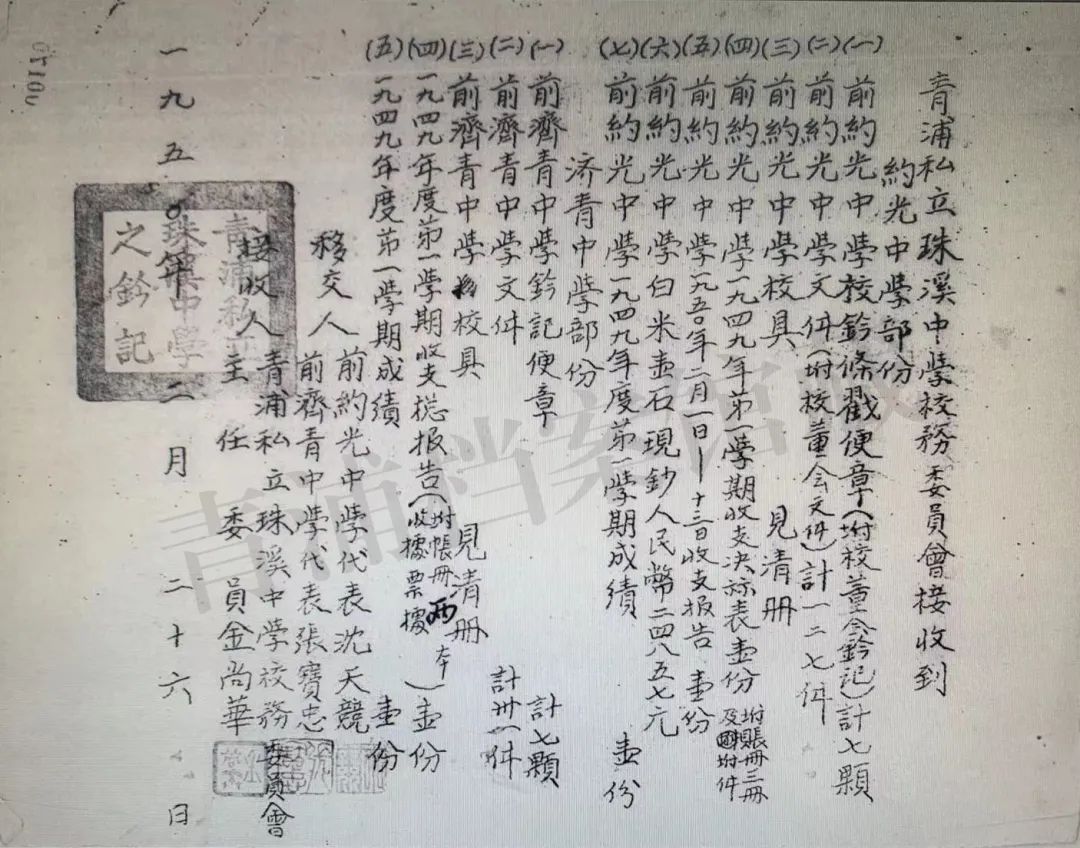 青浦私立珠溪中學校務委員會接收到
約光中學部份
(一)前約光中學校鈐條戳便章(坿校董会鈐記)計七顆
(二)前約光中學文件(坿校董会文件)計一二七件
(三)前約光中學校具 見清册
(四)前約光中學一九四九年第一學期收支决祘表壶份 坿賬冊三冊及坿件
(五)前約光中學一九五〇年二月一日—十三日收支报告 壶份
(六)前約光中學白米壶石現鈔人民幣二四八五七元
(七)前約光中學一九四九年度苐一學期成績 壶份
济青中學部份
(一)前濟青中學鈐記便章 計七顆
(二)前濟青中學文件 計卅一件
(三)前濟青中學校具 見清册
(四)一九四九年度苐一學期收支揔报告(坿帳冊兩本 收據票據)壶份
(五)一九四九年度苐一學期成績 壶份
移交人 前約光中學代表沈天競
前濟青中學代表張寶忠
接收人 青浦私立珠溪中学校務委員會
主任委員金尚華
一九五〇年二月二十六日
青浦私立
珠溪中學
之鈐記
00170
青浦档案馆藏